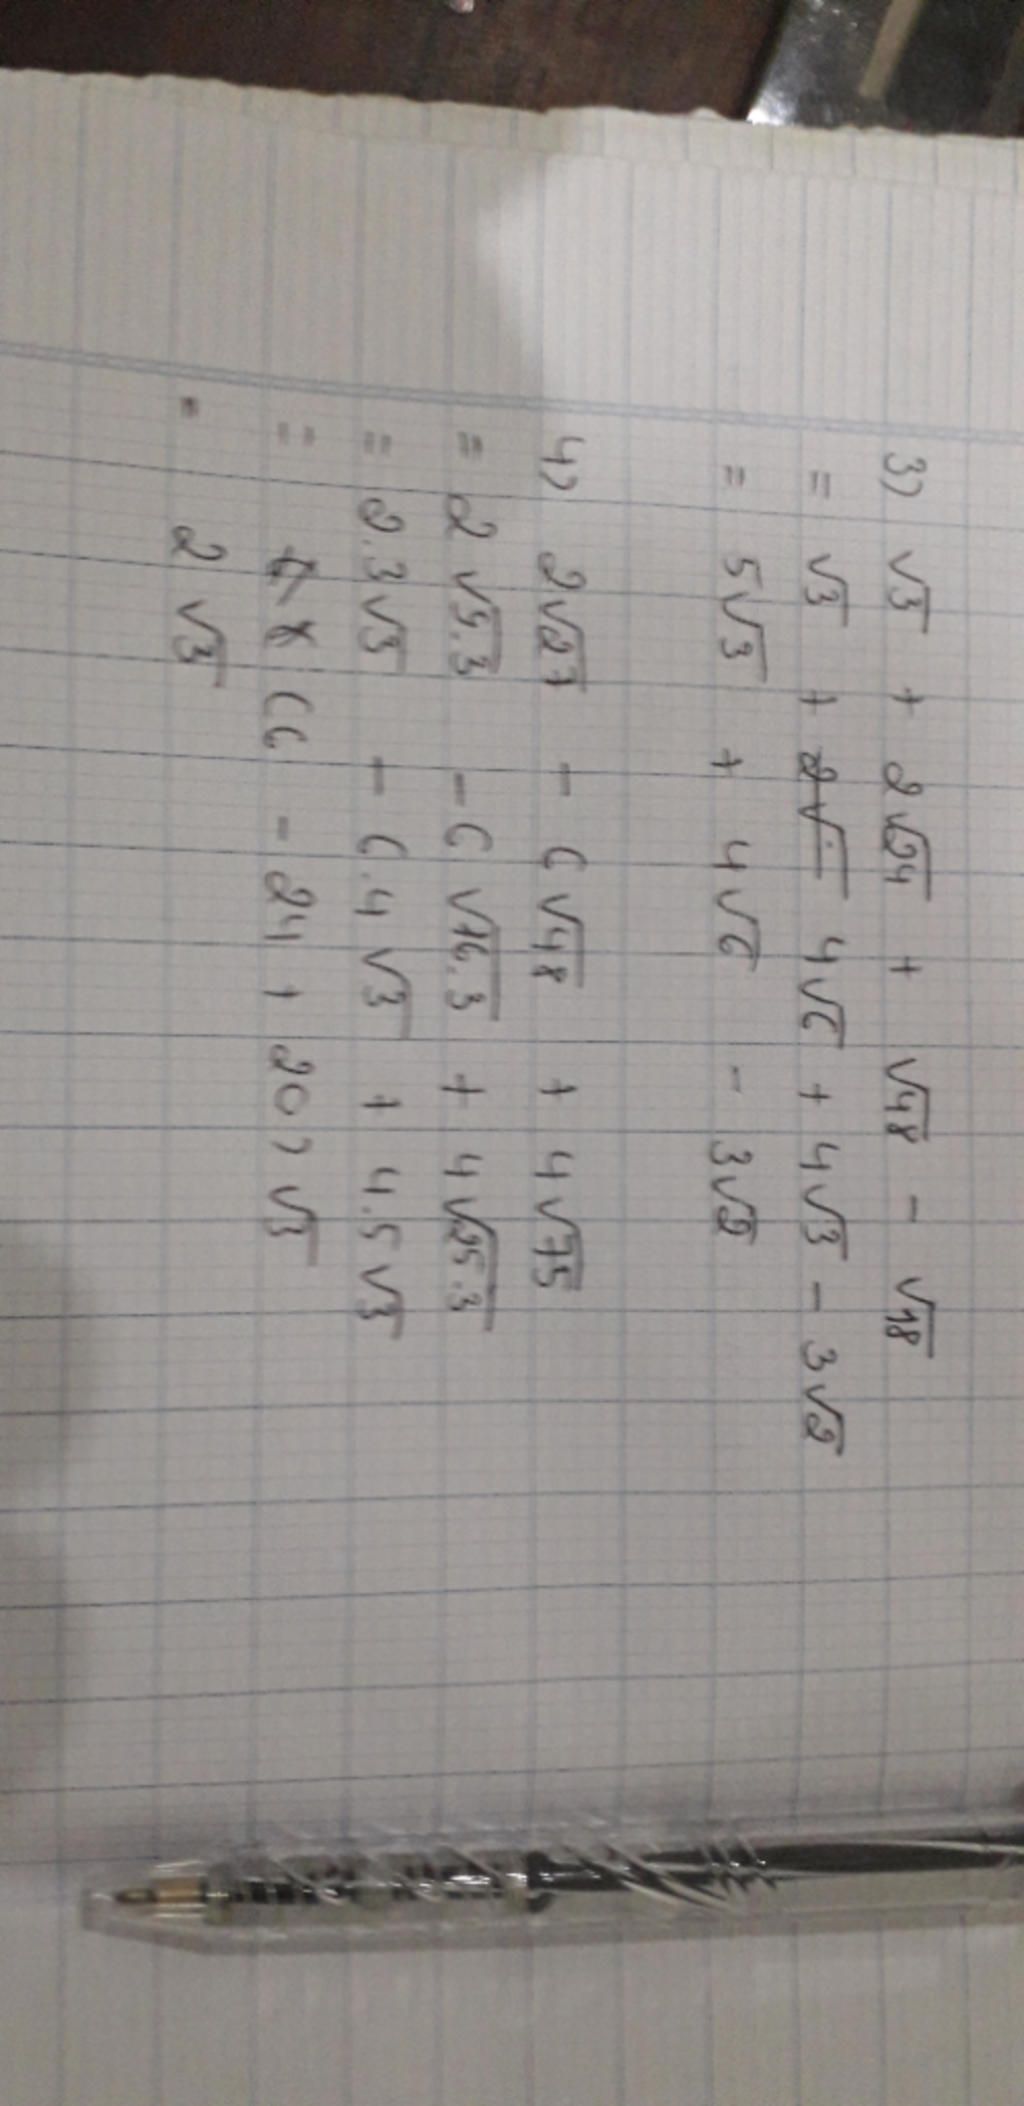 3) √3 + 2√24 + √48 - √18
= √3 + 4√6 + 4√3 - 3√2
= 5√3 + 4√6 - 3√2
4) 2√27 - 6√48 + 4√75
= 2√9.3 - 6√16.3 + 4√25.3
= 2.3√3 - 6.4√3 + 4.5√3
= (6 - 24 + 20)√3
= 2√3